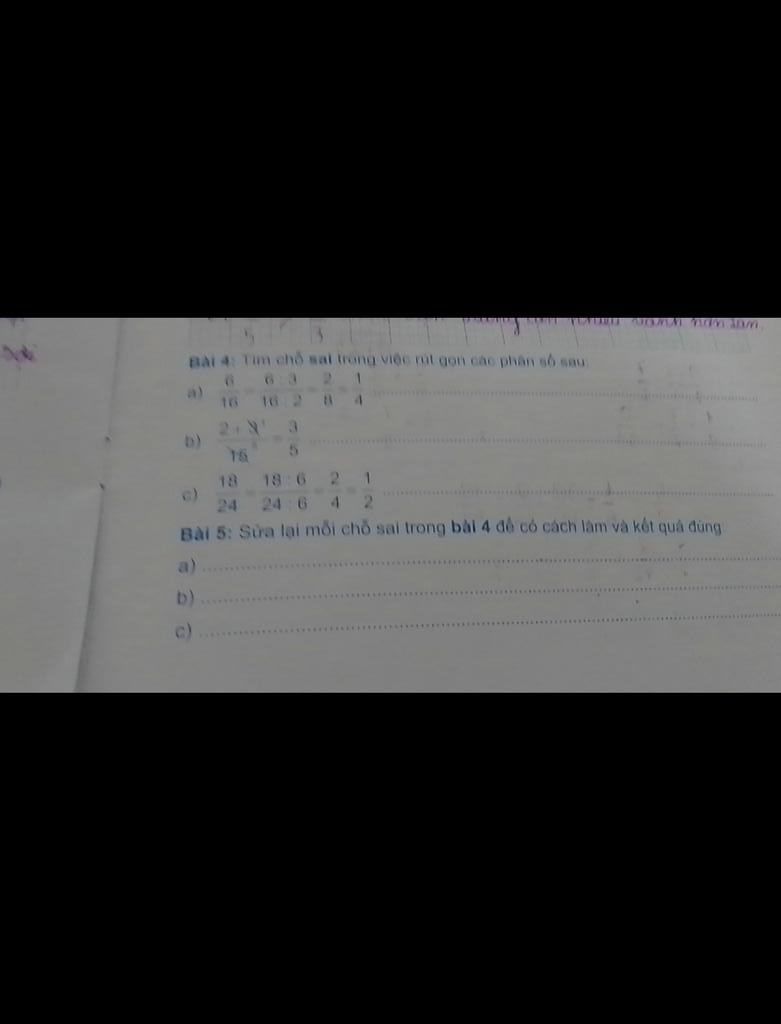 5 3
Bài 4: Tìm chỗ sai trong việc rút gọn các phân số sau:
a) 6/16 = 6 : 3/16 : 2 = 2/8 = 1/4
b) 2 + 3 1/15 5 = 3/5
c) 18/24 = 18 : 6/24 : 6 = 2/4 = 1/2
Bài 5: Sửa lại mỗi chỗ sai trong bài 4 để có cách làm và kết quả đúng:
a)
b)
c)